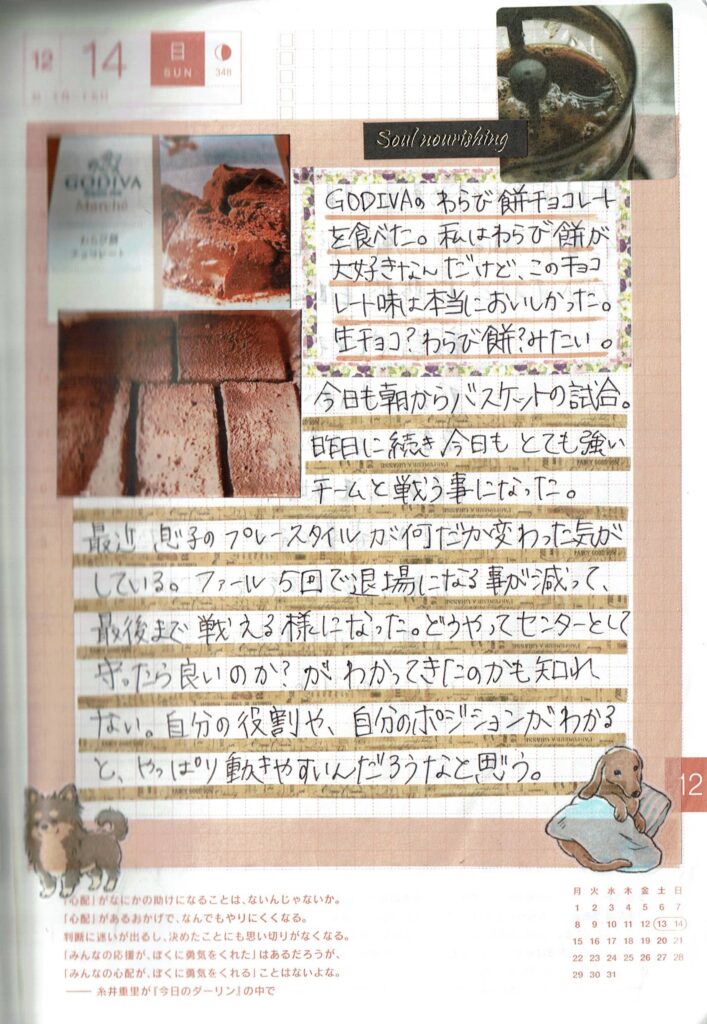 12
14
日
SUN
348
Soul nourishing
GODIVA
Marché
わらび餅
チョコレート
GODIVAの わらび餅チョコレート
を食べた。私はわらび餅が
大好きなんだけど、このチョコ
レート味は本当においしかった。
生チョコ?わらび餅?みたい。
今日も朝からバスケットの試合。
昨日に続き今日もとても強い
チームと戦う事になった。
最近 息子のプレースタイルが何だか変わった気が
している。ファール5回で退場になる事が減って、
最後まで戦える様になった。どうやってセンターとして
守ったら良いのか?がわかってきたのかも知れ
ない。自分の役割や、自分のポジションがわかる
と、やっぱり動きやすいんだろうなと思う。
12
「心配」がなにかの助けになることは、ないんじゃないか。
「心配」があるおかげで、なんでもやりにくくなる。
判断に迷いが出るし、決めたことにも思い切りがなくなる。
「みんなの応援が、ぼくに勇気をくれた」はあるだろうが、
「みんなの心配が、ぼくに勇気をくれる」ことはないよな。
── 糸井重里が『今日のダーリン』の中で
月 火 水 木 金 土 日
1 2 3 4 5 6 7
8 9 10 11 12 13 14
15 16 17 18 19 20 21
22 23 24 25 26 27 28
29 30 31